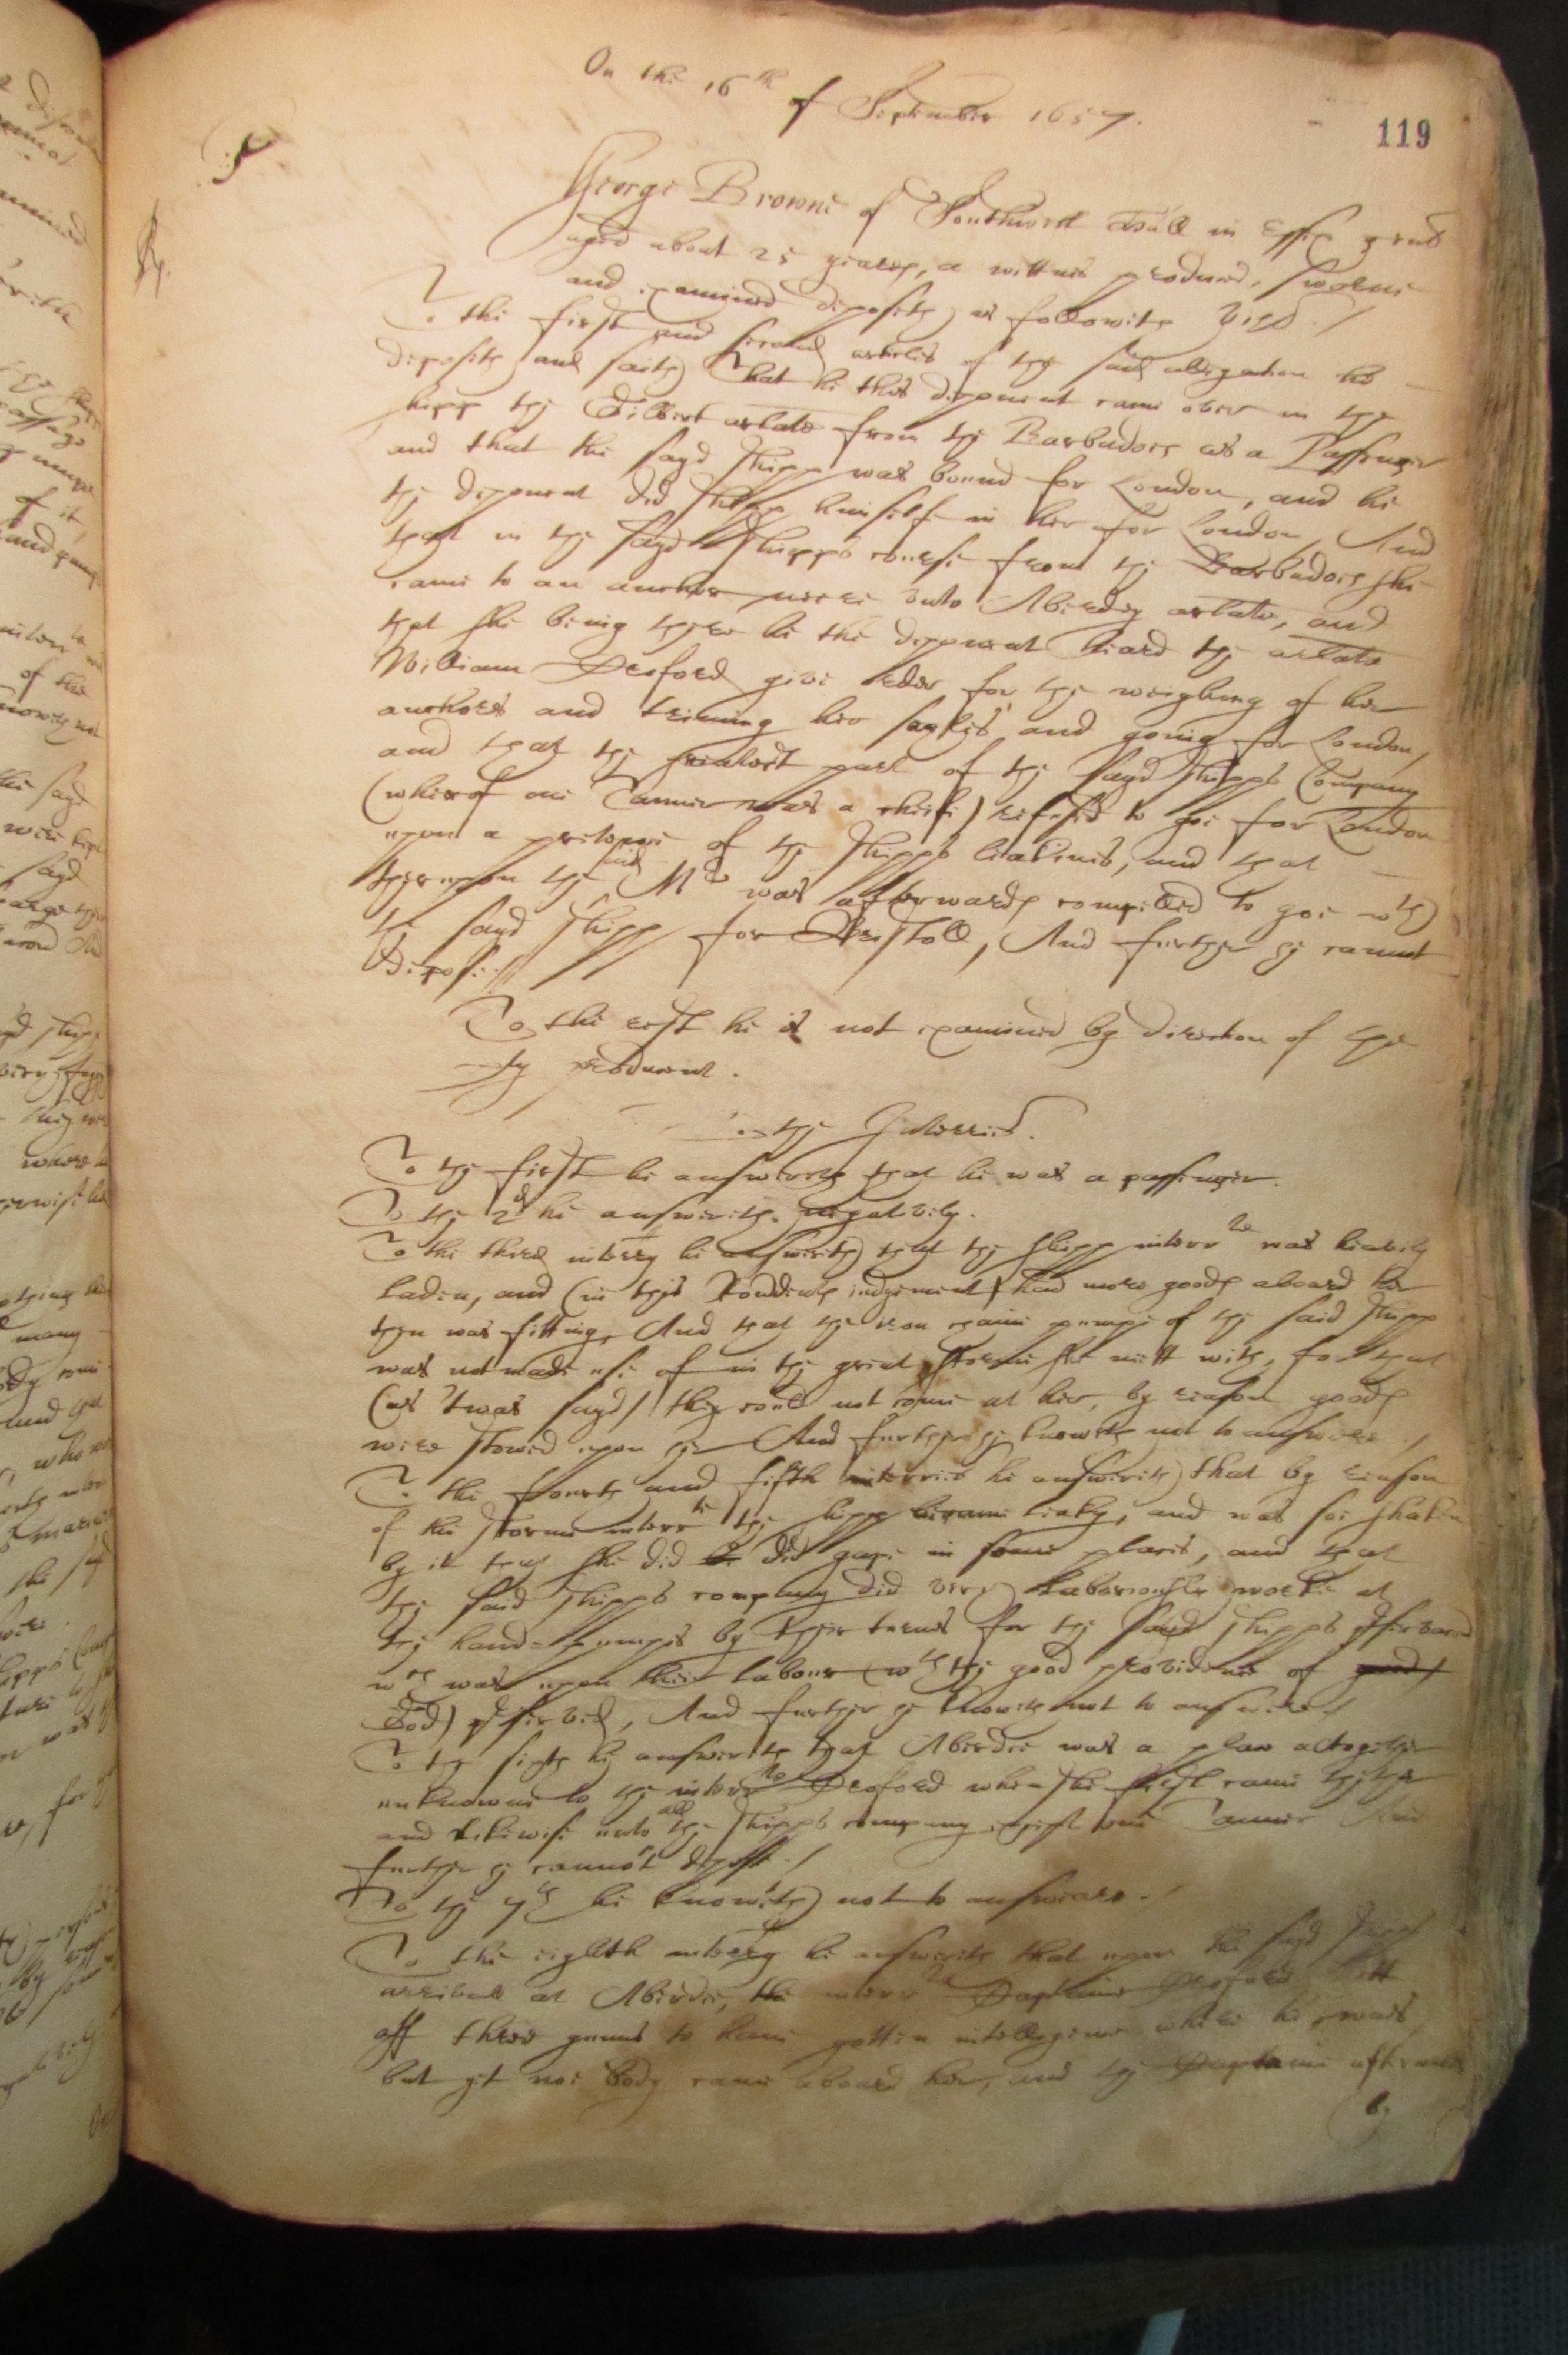 On the 16th of September 1657.
119
George Browne of Southweld Hall in Essex gent
aged about 25 yeares, a wittnes produced, sworne
and examined deposeth as followeth vizt./
To the first and second articles of the said allegation hee
deposeth and saith That he this deponent came over in the
shipp the Gilbert arlate from the Barbadoes as a Passenger
and that the sayd shipp was bound for London, and he
the deponent did shipp himself in her for London, And
that in the sayd shipps course from the Barbadoes she
came to an anchor neere unto Aberdey arlate, and
that she being there he the deponent heard the arlate
William give order for the weighing of her
anchors and triming her sayles and going for London,
and that the greatest part of the sayd shipps Company
(whereof one Tanner was a cheife) refused to goe for London
upon a pretence of the shipps leakines, and that
thereupon the said Mr was afterwards compelled to goe wth
the sayd shipp for Bristoll, And further he cannot
depose./
To the rest he is not examined by direction of the
producent.
To the Interries.
To the first he answereth that he was a passenger.
To the 2d he answereth negatively.
To the third interry he answereth that the shipp interrte was heavily
laden, and (in this Rondents judgement) had more goods aboard her
then was fitting, And that the iron chaine pumpe of the said shipp
was not made use of in the great storme she mett with, for that
(as 'twas sayd) they could not come at her, by reason goods
were stowed upon her And further he knoweth not to answere./
To the fourth and fifth interries he answereth that by reason
of the storme interrte the shipp became leaky, and was soe shaken
by it that she did be did gape in some places, and that
the said shipps company did very laboriously worke at
the hand-pumpes by their turnes for the sayd shipps pservacon
wch was upon their labour (wth the good providence of good/
God) pserved, And further he knoweth not to answere/
To the sixth he answereth that Aberdee was a place altogether
unknowne to the interrte when she first came thither
and likewise unto all the shipps company except one Tanner And
further he cannot depose./
To the 7th he knoweth not to answeare./
To the eighth interry he answereth that upon the sayd shipps
arrivall at Aberdee, the interrte Captaine lett
off three gunns to have gotten intelligence where he was
but yet noe body came aboard her, and the Captaine afterwards
by